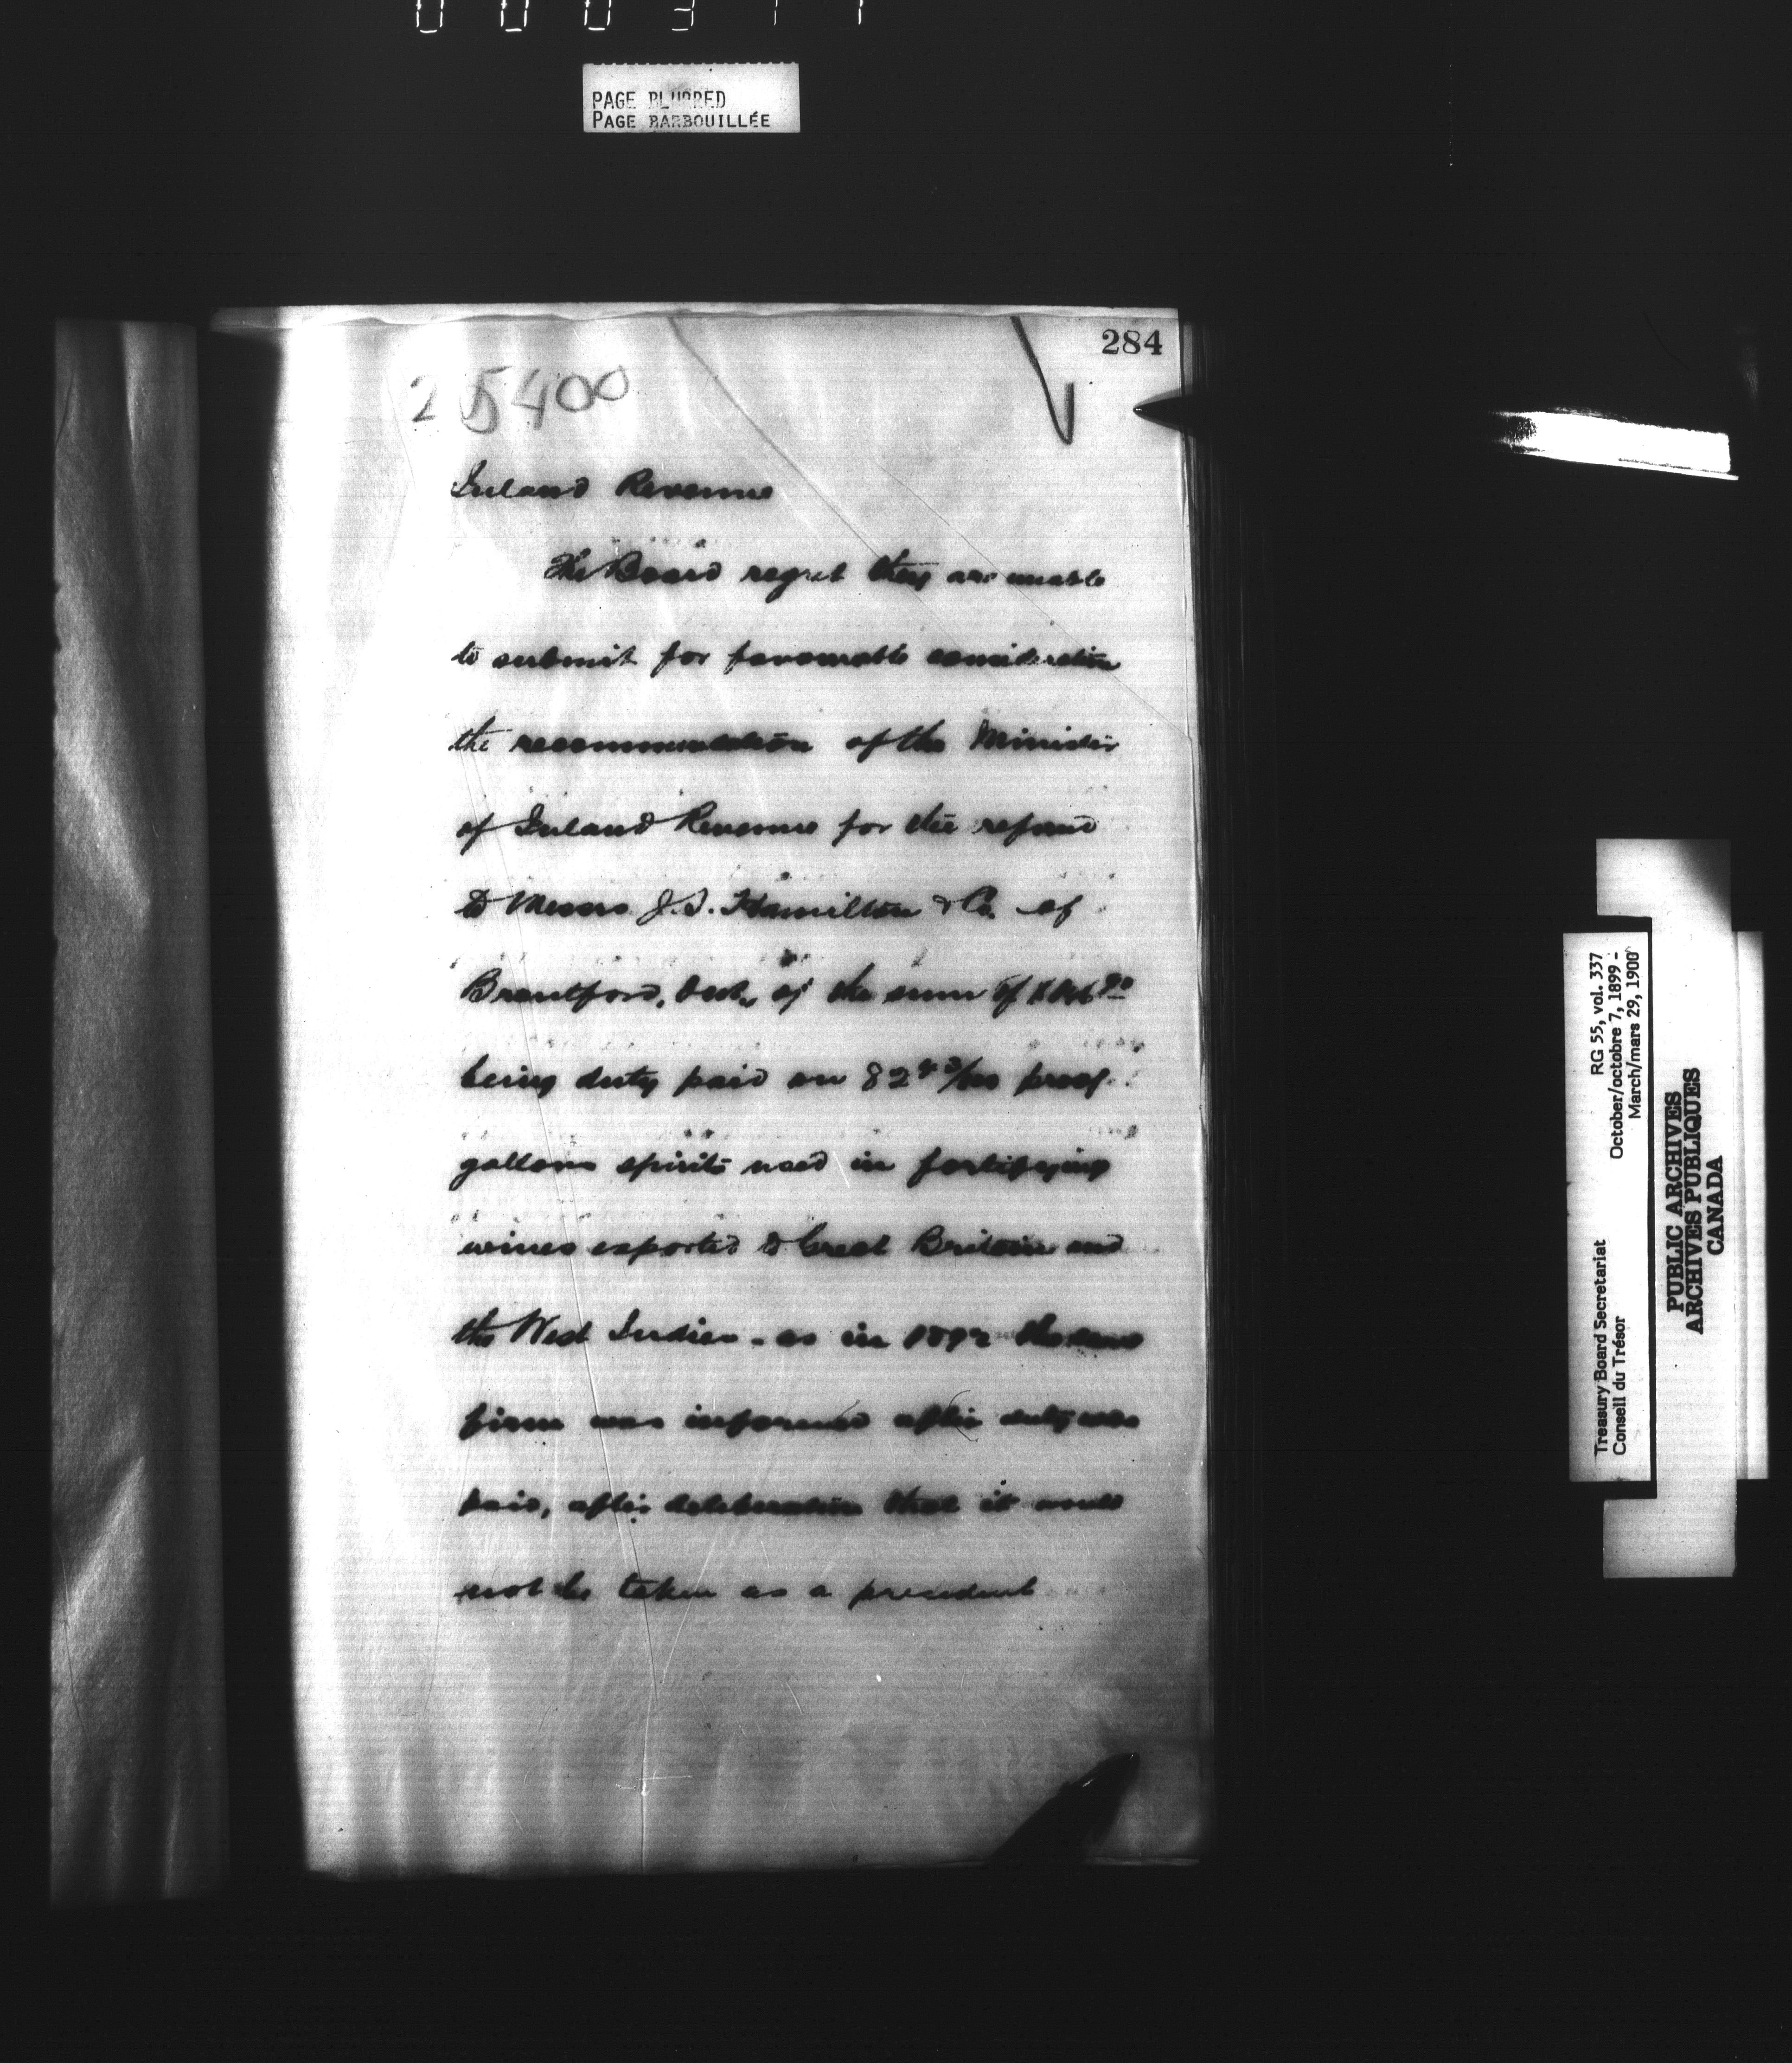 PAGE BLURRED
PAGE BARBOUILLÉE
284
25400
Inland Revenue
The Board regret they are unable
to submit for favourable consideration
the recommendation of the Minister
of Inland Revenue for the refund
to Messrs J.S. Hamilton & Co. of
Brantford, Ont., of the sum of
being duty paid on 82 proof
gallons spirits used in fortifying
wines exported to Great Britain and
the West Indies - as in 1892 the same
firm was informed after duty was
paid, after deliberation that it would
not be taken as a precedent
RG 55, vol. 337
October/octobre 7, 1899 -
March/mars 29, 1900
Treasury Board Secretariat
Conseil du Trésor
PUBLIC ARCHIVES
ARCHIVES PUBLIQUES
CANADA